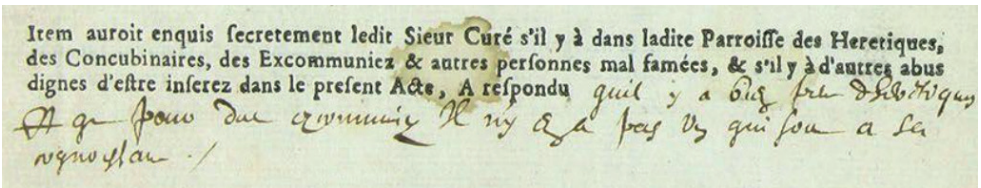 Item auroit enquis secretement ledit Sieur Curé s'il y à dans ladite Parroisse des Heretiques,
des Concubinaires, des Excommuniez & autres personnes mal famées, & s'il y à d'autres abus
dignes d'estre inserez dans le present Acte, A respondu quil y a peu
Et que pour Il ny en a pas un qui soit a sa
cognoissance ./